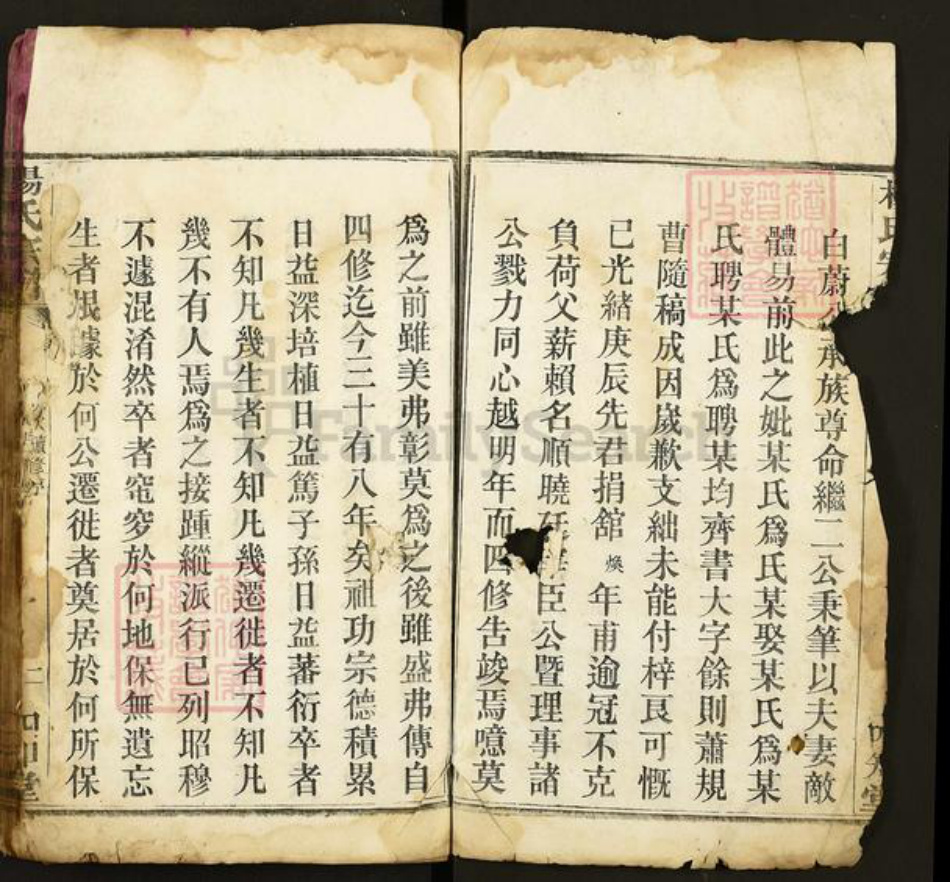 白蔚公承族尊命繼二公秉筆以夫妻敵
體易前此之妣某氏爲氏某娶某氏爲某
氏聘某氏爲聘某均齊書大字餘則蕭規
曹隨稿成因歲歉支絀未能付梓艮可慨
已光緒庚辰先君捐舘煥年甫逾冠不克
負荷父薪賴名順曉臣公暨理事諸
公戮力同心越明年而四修吿竣焉噫莫
爲之前雖美弗彰莫爲之後雖盛弗傳自
四修迄今三十有八年矣祖功宗德積累
日益深培植日益篤子孫日益蕃衍卒者
不知凡幾生者不知凡幾遷徙者不知凡
幾不有人焉爲之接踵縱派行已列昭穆
不遽混淆然卒者窀穸於何地保無遺忘
生者根據於何公遷徙者奠居於何所保
楊氏宗譜
二
FamilySearch